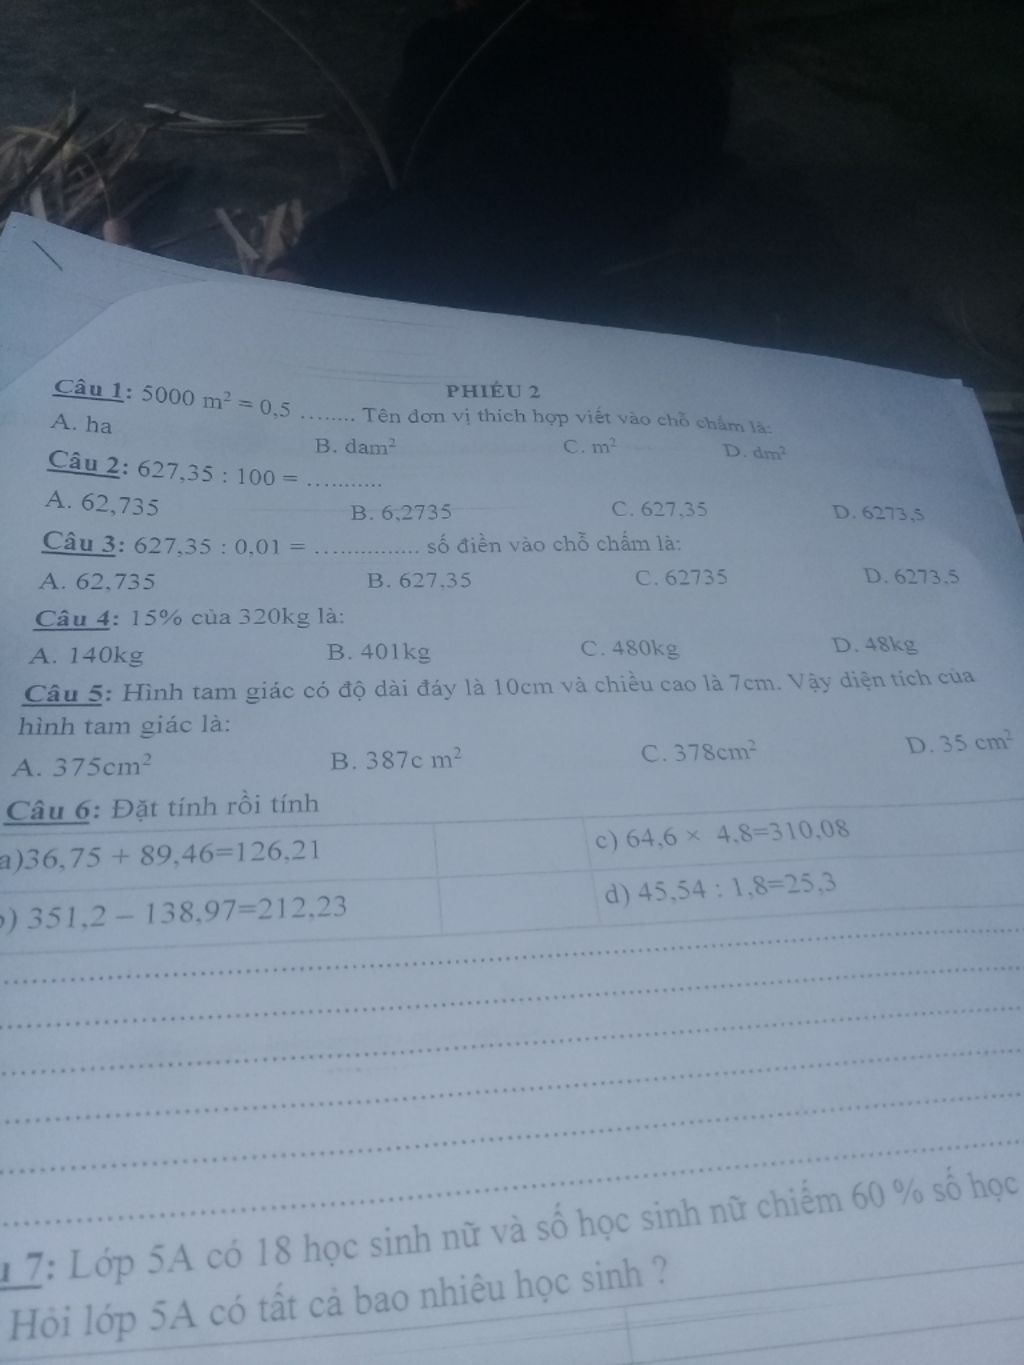 PHIẾU 2
Câu 1: 5000 m² = 0,5 ........ Tên đơn vị thích hợp viết vào chỗ chấm là:
A. ha B. dam² C. m² D. dm²
Câu 2: 627,35 : 100 = ...........
A. 62,735 B. 6,2735 C. 627,35 D. 6273,5
Câu 3: 627,35 : 0,01 = ............... số điền vào chỗ chấm là:
A. 62,735 B. 627,35 C. 62735 D. 6273,5
Câu 4: 15% của 320kg là:
A. 140kg B. 401kg C. 480kg D. 48kg
Câu 5: Hình tam giác có độ dài đáy là 10cm và chiều cao là 7cm. Vậy diện tích của
hình tam giác là:
A. 375cm² B. 387c m² C. 378cm² D. 35 cm²
Câu 6: Đặt tính rồi tính
a)36,75 + 89,46=126,21 c) 64,6 × 4,8=310,08
) 351,2 – 138,97=212,23 d) 45,54 : 1,8=25,3
7: Lớp 5A có 18 học sinh nữ và số học sinh nữ chiếm 60 % số học
Hỏi lớp 5A có tất cả bao nhiêu học sinh ?